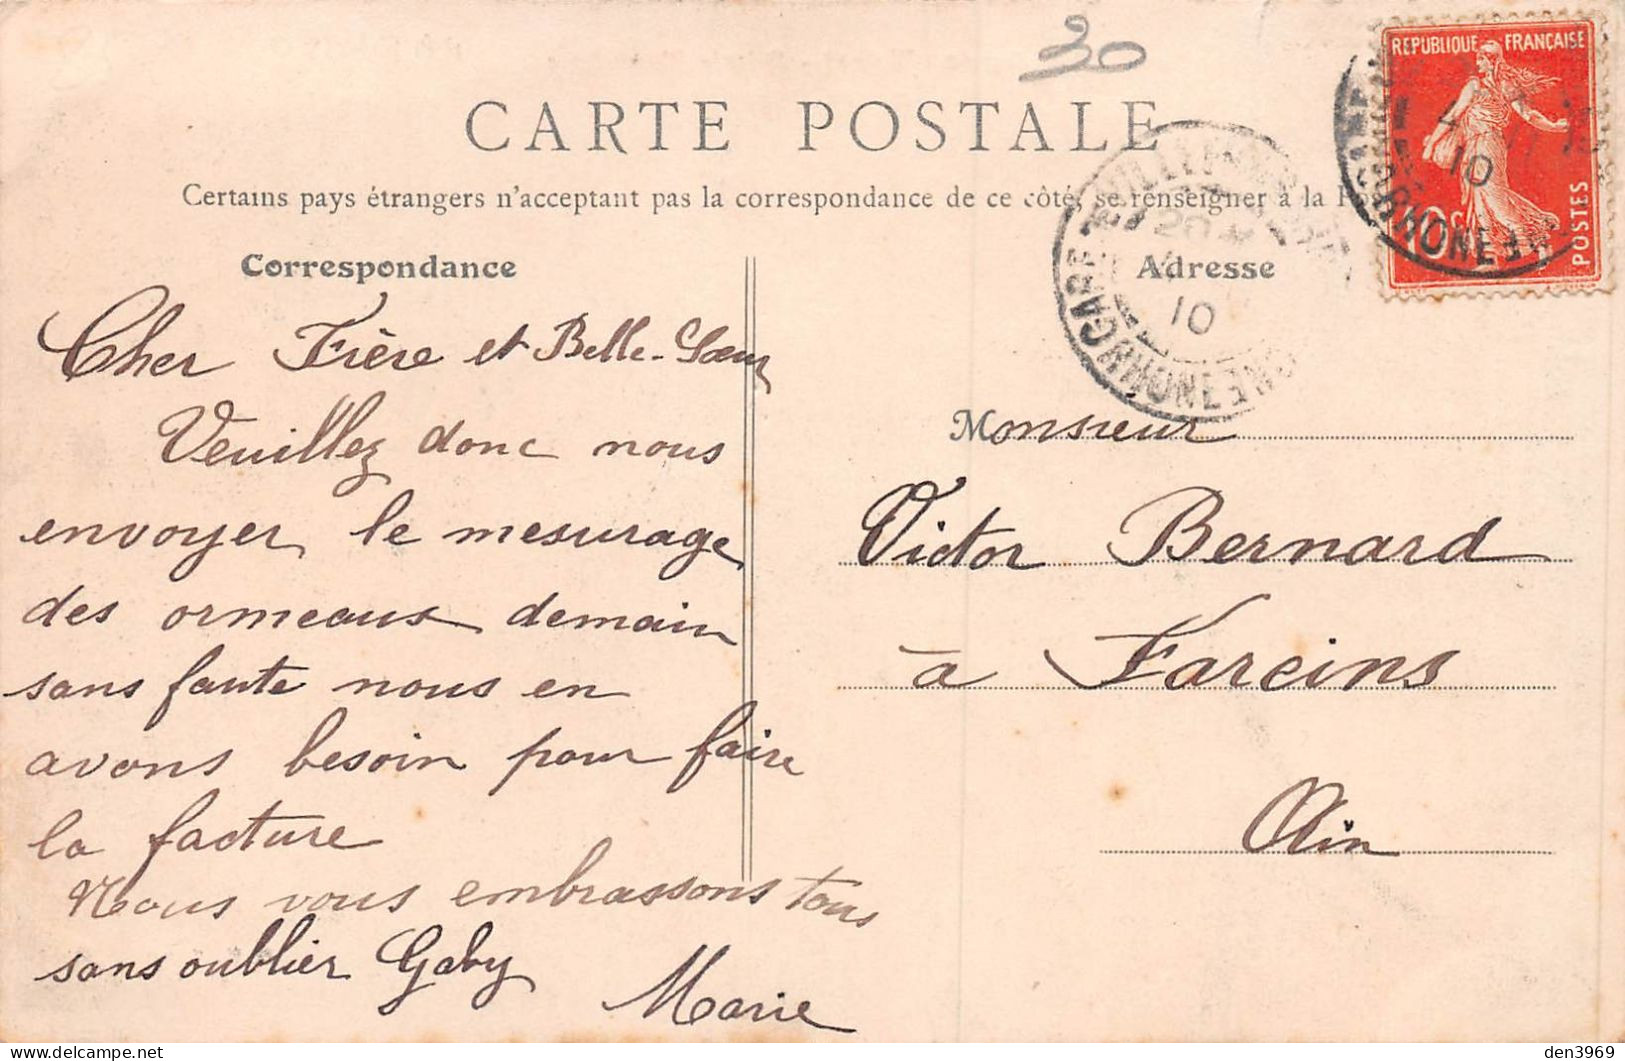 30
CARTE POSTALE
Certains pays étrangers n'acceptent pas la correspondance de ce côté, se renseigner à la
REPUBLIQUE FRANÇAISE
10c
POSTES
10
RHONE
GARE DE VILLEFRANCHE
20
10
RHONE
Correspondance
Cher Frère et Belle-Sœur
Veuillez donc nous
envoyer le mesurage
des ormeaux demain
sans faute nous en
avons besoin pour faire
la facture
Nous vous embrassons tous
sans oublier Gaby
Marie
Adresse
Monsieur
Victor Bernard
à Fareins
Ain
den3969